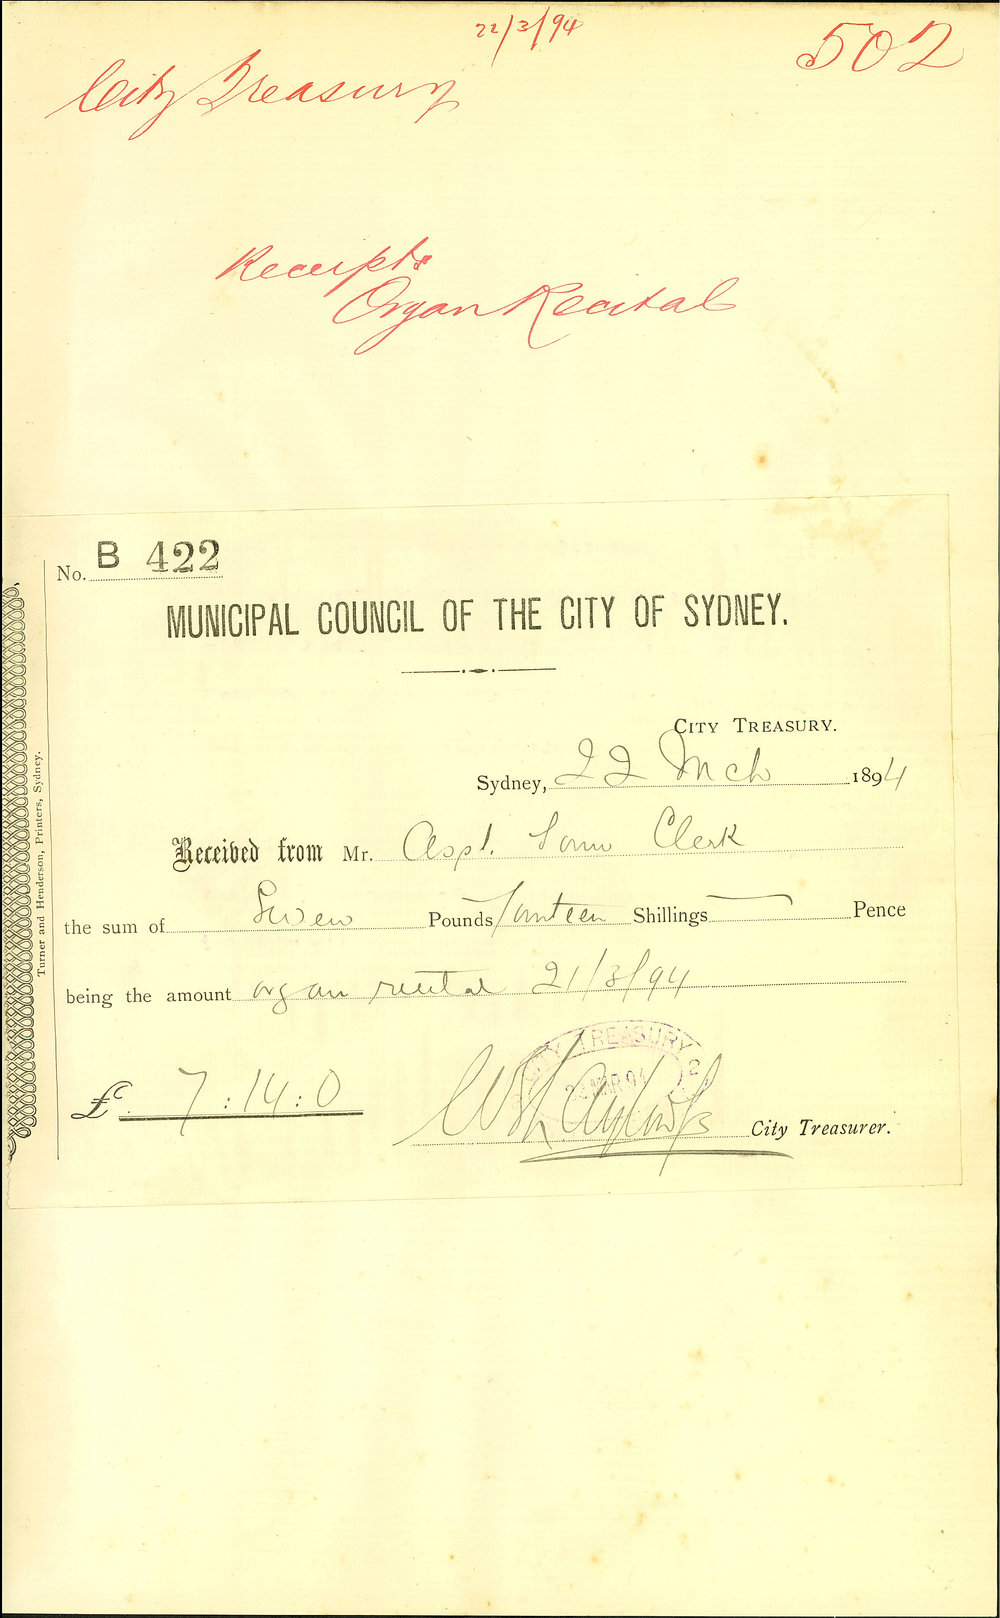 22/3/94
502
City Treasury
Receipts
Organ Recital
No. B 422
MUNICIPAL COUNCIL OF THE CITY OF SYDNEY.
CITY TREASURY.
Sydney, 22 Mch 1894
Received from Mr. Asst. Town Clerk
the sum of Seven Pounds fourteen Shillings — Pence
being the amount organ recital 21/3/94
£ 7:14:0
CITY TREASURY
22 MAR 94
City Treasurer.
Turner and Henderson, Printers, Sydney.